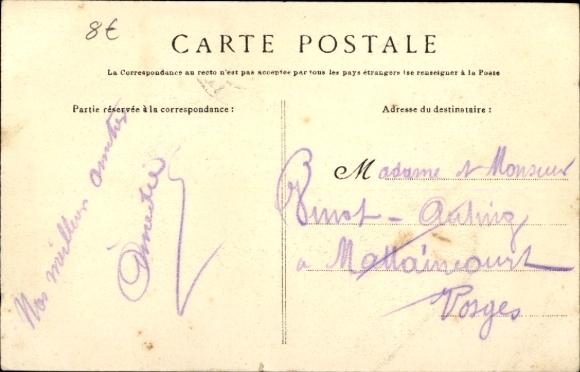 8€
CARTE POSTALE
La Correspondance au recto n'est pas acceptée par tous les pays étrangers (se renseigner à la Poste
Partie réservée à la correspondance :
Nos meilleurs amitiés
Adresse du destinataire :
Madame et Monsieur
à Mattaincourt
Vosges